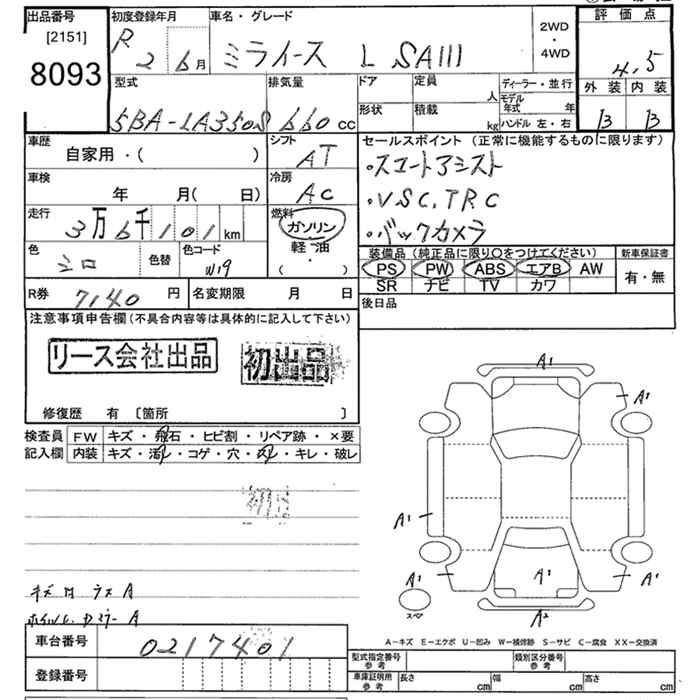 出品番号
[2151]
8093
初度登録年月
R 2 6月
車名・グレード
ミライース L SAIII
2WD
・
4WD
評価点
4.5
外装 内装
B B
型式
5BA-LA350S
排気量
660 cc
ドア
形状
定員 人
積載 kg
ディーラー・並行
モデル年式 年
ハンドル 左・右
車歴
自家用・( )
シフト
AT
セールスポイント (正常に機能するものに限ります)
・スマートアシスト
・VSC,TRC
・バックカメラ
車検
年 月( 日)
冷房
AC
走行
3万6千101km
燃料
ガソリン
軽・油
・( )
色
シロ
色替
色コード
W19
装備品 (純正品に限り〇をつけてください)
PS PW ABS エアB AW
SR ナビ TV カワ
新車保証書
有・無
R券 7140円
名変期限 月 日
後日品
注意事項申告欄(不具合内容等は具体的に記入して下さい)
リース会社出品
初出品
修復歴 有 〔箇所 〕
検査員
記入欄
FW キズ・飛石・ヒビ割・リペア跡・×要
内装 キズ・汚・コゲ・穴・・キレ・破レ
A1
A1
A1
A1
A1
A1
A1
A2
スペア
A
A
A-キズ E-エクボ U-凹み W-補修跡 S-サビ C-腐食 XX-交換済
車台番号 0217401
登録番号
型式指定番号
参考
類別区分番号
参考
車庫証明用
参考
長さ cm
幅 cm
高さ cm